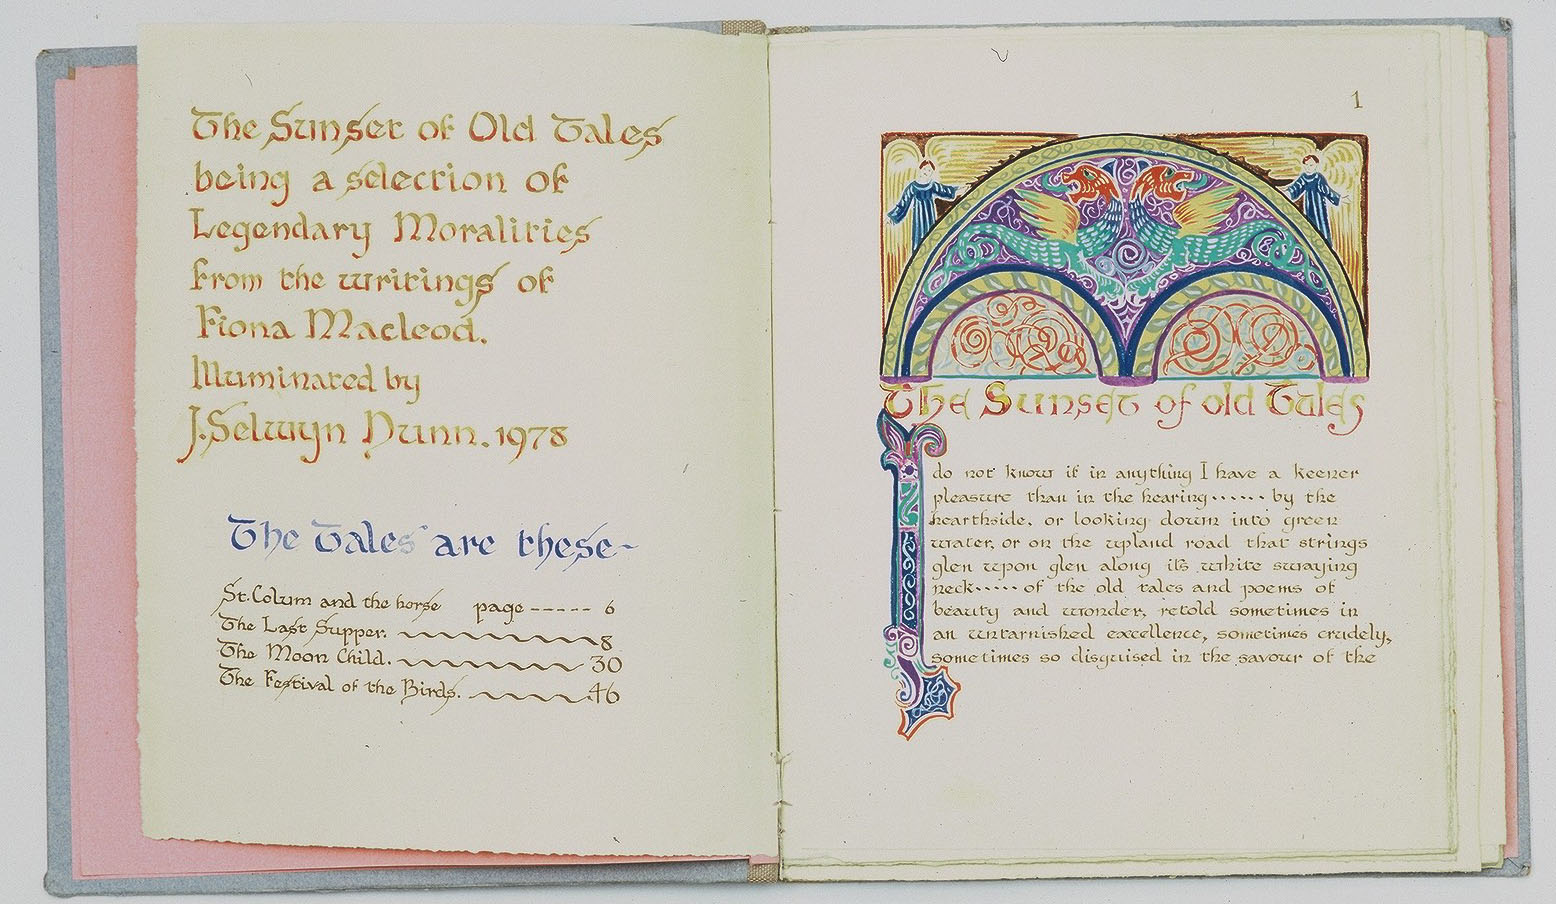 The Sunset of Old Tales
being a selection of
Legendary Moralities
from the writings of
Fiona Macleod.
Illuminated by
J. Selwyn Dunn. 1978
The Tales are these~
St. Colum and the horse page ------ 6
The Last Supper. 8
The Moon Child. 30
The Festival of the Birds. 46
1
The Sunset of old Tales
I do not know if in anything I have a keener
pleasure than in the hearing ...... by the
hearthside, or looking down into green
water, or on the upland road that strings
glen upon glen along its white swaying
neck ..... of the old tales and poems of
beauty and wonder, retold sometimes in
an untarnished excellence, sometimes crudely,
sometimes so disguised in the savour of the